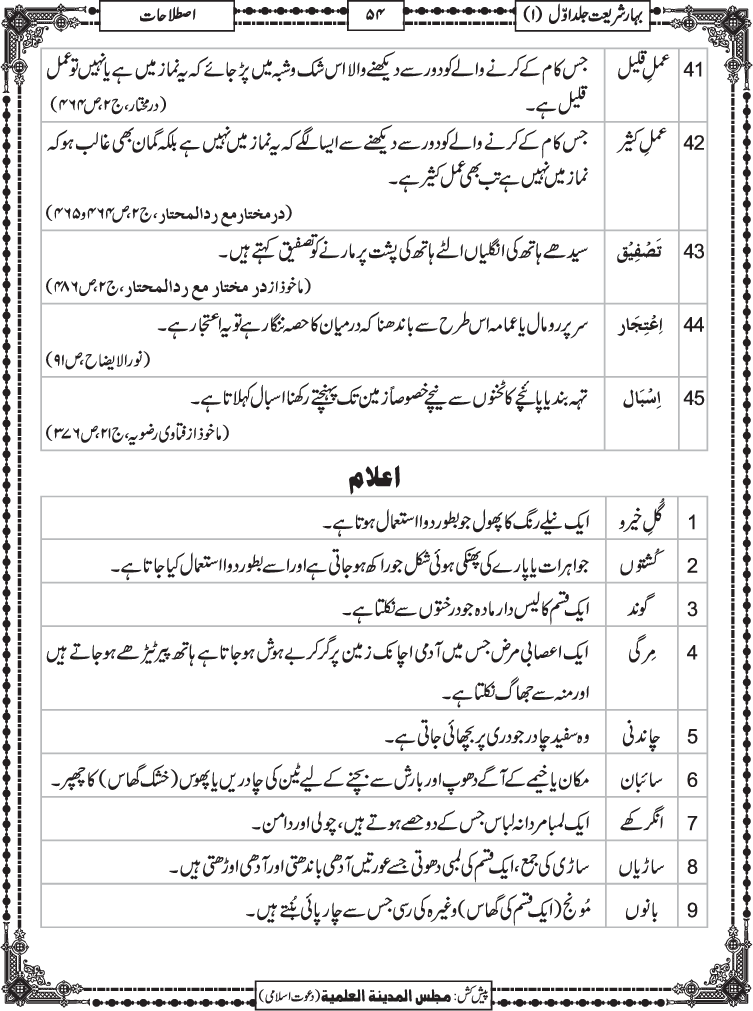 بہارِشریعت جلداوّل (۱)
۵۴
اصطلاحات
41 عملِ قلیل جس کام کے کرنے والے کو دور سے دیکھنے والا اس شک وشبہ میں پڑ جائے کہ یہ نماز میں ہے یا نہیں تو عمل
قلیل ہے۔ (درمختار،ج۲،ص۴۶۴)
42 عملِ کثیر جس کام کے کرنے والے کو دور سے دیکھنے سے ایسا لگے کہ یہ نماز میں نہیں ہے بلکہ گمان بھی غالب ہو کہ
نماز میں نہیں ہے تب بھی عمل کثیر ہے۔
(درمختار مع ردالمحتار،ج۲،ص۴۶۴و۴۶۵)
43 تَصْفِیْق سیدھے ہاتھ کی انگلیاں الٹے ہاتھ کی پشت پر مارنے کو تصفیق کہتے ہیں۔
(ماخوذ از در مختار مع ردالمحتار،ج۲،ص۴۸۶)
44 اِعْتِجَار سر پر رومال یا عمامہ اس طرح سے باندھنا کہ درمیان کا حصہ ننگا رہے تو یہ اعتجار ہے۔
(نورالایضاح،ص۹۱)
45 اِسْبَال تہہ بند یا پائنچے کا ٹخنوں سے نیچے خصوصاً زمین تک پہنچتے رکھنا اسبال کہلاتا ہے۔
(ماخوذ از فتاوی رضویہ،ج۲۱،ص۳۷۶)
اعلام
1 گُلِ خیرو ایک نیلے رنگ کا پھول جو بطور دوا استعمال ہوتا ہے۔
2 کُشتوں جواہرات یا پارے کی پھنکی ہوئی شکل جو راکھ ہوجاتی ہے اور اسے بطور دوا استعمال کیا جاتا ہے۔
3 گوند ایک قسم کا لیس دار مادہ جو درختوں سے نکلتا ہے۔
4 مِرگی ایک اعصابی مرض جس میں آدمی اچانک زمین پر گر کر بے ہوش ہوجاتا ہے ہاتھ پیر ٹیڑھے ہوجاتے ہیں
اور منہ سے جھاگ نکلتا ہے۔
5 چاندنی وہ سفید چادر جو دری پر بچھائی جاتی ہے۔
6 سائبان مکان یا خیمے کے آگے دھوپ اور بارش سے بچنے کے لیے ٹین کی چادریں یا پھوس (خشک گھاس) کا چھپر۔
7 انگرکھے ایک لمبا مردانہ لباس جس کے دو حصے ہوتے ہیں، چولی اور دامن۔
8 ساڑیاں ساڑی کی جمع، ایک قسم کی لمبی دھوتی جسے عورتیں آدھی باندھتی اور آدھی اوڑھتی ہیں۔
9 بانوں مُونج (ایک قسم کی گھاس) وغیرہ کی رسی جس سے چارپائی بُنتے ہیں۔
پیش کش: مجلس المدینۃ العلمیۃ (دعوت اسلامی)